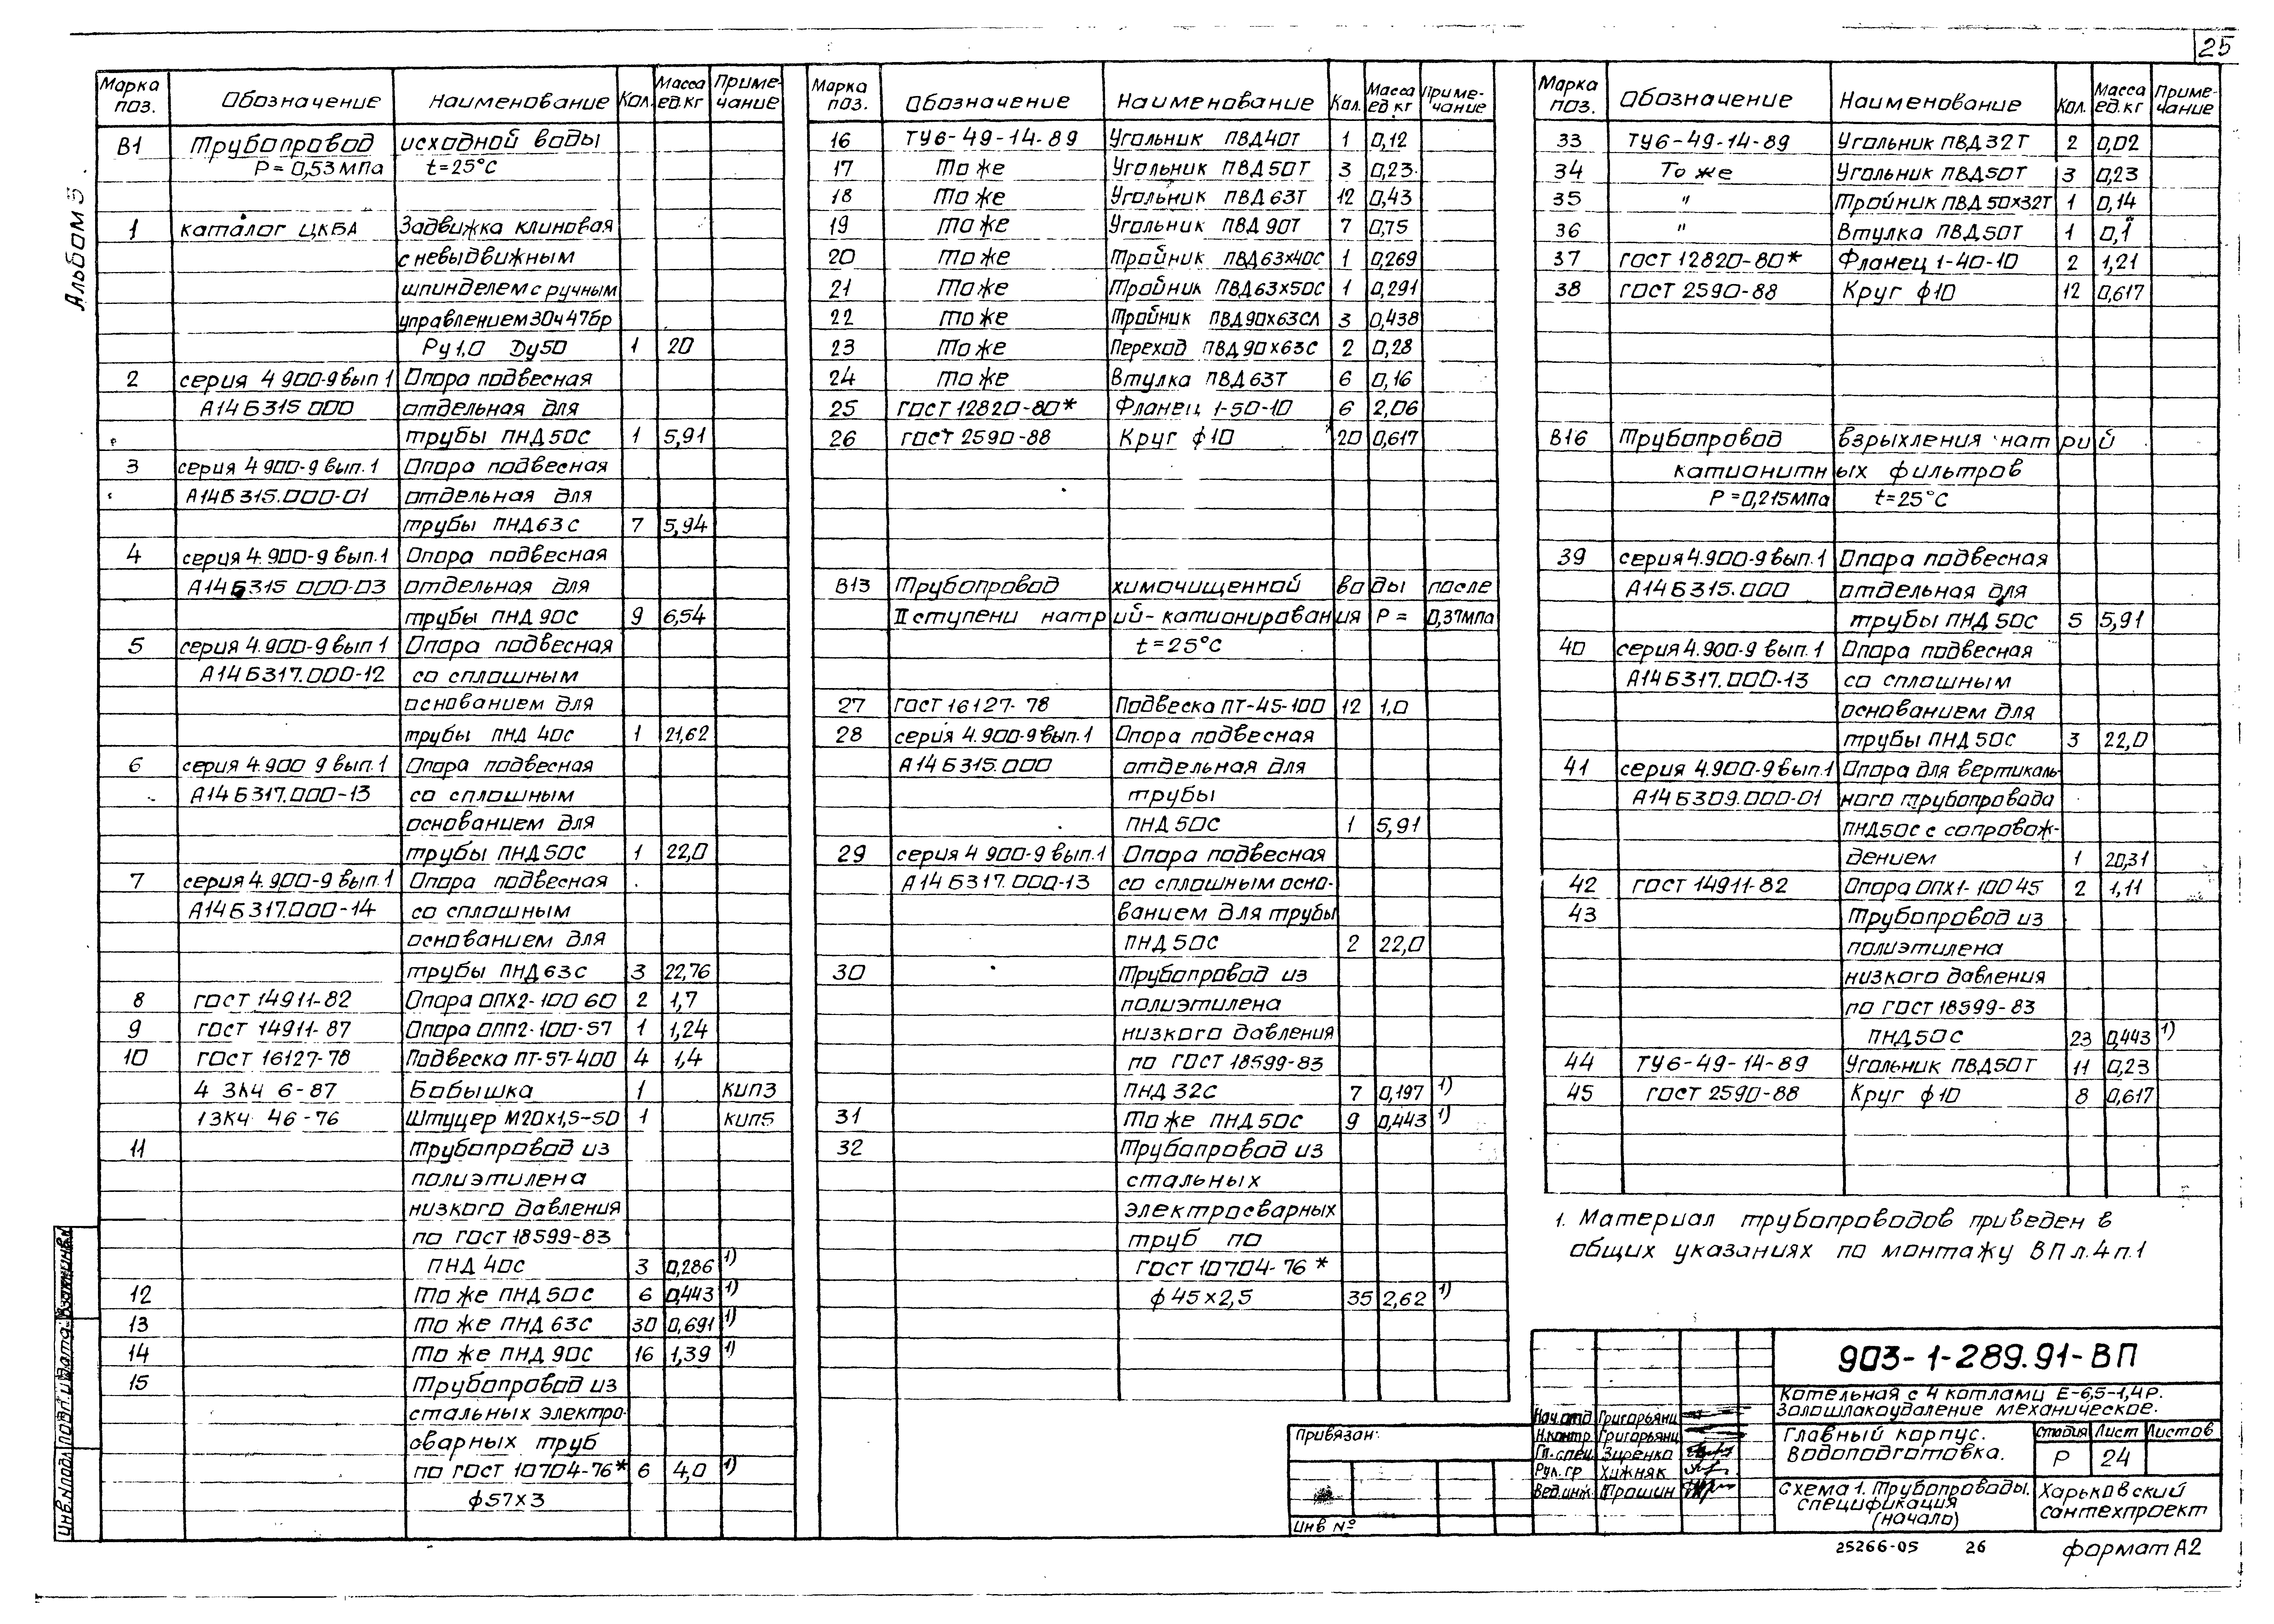 25
Альбом 5.
Марка поз. Обозначение Наименование Кол. Масса ед.кг Примечание
В1 Трубопровод исходной воды
Р=0,53мпа t=25°С
1 каталог ЦКБА Задвижка клиновая
с невыдвижным
шпинделем с ручным
управлением 30ч47бр
Ру1,0 Ду50 1 20
2 серия 4 900-9 вып 1 Опора подвесная
А14Б315 000 отдельная для
трубы ПНД 50С 1 5,91
3 серия 4.900-9 вып.1 Опора подвесная
А14Б315.000-01 отдельная для
трубы ПНД 63С 7 5,94
4 серия 4.900-9 вып.1 Опора подвесная
А14Б315 000-03 отдельная для
трубы ПНД 90С 9 6,54
5 серия 4.900-9 вып 1 Опора подвесная
А14Б317.000-12 со сплошным
основанием для
трубы ПНД 40С 1 21,62
6 серия 4.900 9 вып.1 Опора подвесная
А14Б317.000-13 со сплошным
основанием для
трубы ПНД 50С 1 22,0
7 серия 4.900-9 вып.1 Опора подвесная
А14Б317.000-14 со сплошным
основанием для
трубы ПНД 63С 3 22,76
8 ГОСТ 14911-82 Опора ОПХ2-100 60 2 1,7
9 ГОСТ 14911-87 Опора ОПП2-100-57 1 1,24
10 ГОСТ 16127-78 Подвеска ПТ-57-400 4 1,4
4 ЗКЧ 6-87 Бобышка 1 КИП3
13КЧ 46-76 Штуцер М20х1,5-50 1 КИП5
11 Трубопровод из
полиэтилена
низкого давления
по ГОСТ 18599-83
ПНД 40С 3 0,286 1)
12 То же ПНД 50С 6 0,443 1)
13 То же ПНД 63С 30 0,691 1)
14 То же ПНД 90С 16 1,39 1)
15 Трубопровод из
стальных электро-
сварных труб
по ГОСТ 10704-76* 6 4,0 1)
ф57х3
Марка поз. Обозначение Наименование Кол. Масса ед.кг Примечание
16 ТУ6-49-14-89 Угольник ПВД40Т 1 0,12
17 То же Угольник ПВД50Т 3 0,23
18 То же Угольник ПВД 63Т 12 0,43
19 То же Угольник ПВД 90Т 7 0,75
20 То же Тройник ПВД63х40С 1 0,269
21 То же Тройник ПВД63х50С 1 0,291
22 То же Тройник ПВД90х63СЛ 3 0,438
23 То же Переход ПВД90х63С 2 0,28
24 То же Втулка ПВД 63Т 6 0,16
25 ГОСТ 12820-80* Фланец 1-50-10 6 2,06
26 ГОСТ 2590-88 Круг ф10 20 0,617
В13 Трубопровод химочищенной воды после
II ступени натрий-катионирования Р= 0,37мпа
t=25°С
27 ГОСТ 16127-78 Подвеска ПТ-45-100 12 1,0
28 серия 4.900-9 вып.1 Опора подвесная
А14Б315.000 отдельная для
трубы
ПНД 50С 1 5,91
29 серия 4 900-9 вып.1 Опора подвесная
А14Б317.000-13 со сплошным осно-
ванием для трубы
ПНД 50С 2 22,0
30 Трубопровод из
полиэтилена
низкого давления
по ГОСТ 18599-83
ПНД 32С 7 0,197 1)
31 То же ПНД 50С 9 0,443 1)
32 Трубопровод из
стальных
электросварных
труб по
ГОСТ 10704-76*
ф45х2,5 35 2,62 1)
Марка поз. Обозначение Наименование Кол. Масса ед.кг Примечание
33 ТУ6-49-14-89 Угольник ПВД32Т 2 0,02
34 То же Угольник ПВД50Т 3 0,23
35 " Тройник ПВД 50х32Т 1 0,14
36 " Втулка ПВД50Т 1 0,1
37 ГОСТ 12820-80* Фланец 1-40-10 2 1,21
38 ГОСТ 2590-88 Круг ф10 12 0,617
В16 Трубопровод взрыхления натрий
катионитных фильтров
Р=0,215мпа t=25°С
39 серия 4.900-9 вып.1 Опора подвесная
А14Б315.000 отдельная для
трубы ПНД 50С 5 5,91
40 серия 4.900-9 вып.1 Опора подвесная
А14Б317.000-13 со сплошным
основанием для
трубы ПНД 50С 3 22,0
41 серия 4.900-9 вып.1 Опора для вертикаль-
А14Б309.000-01 ного трубопровода
ПНД50С с сопровож-
дением 1 20,31
42 ГОСТ 14911-82 Опора ОПХ1-100 45 2 1,11
43 Трубопровод из
полиэтилена
низкого давления
по ГОСТ 18599-83
ПНД50С 23 0,443 1)
44 ТУ6-49-14-89 Угольник ПВД50Т 11 0,23
45 ГОСТ 2590-88 Круг ф10 8 0,617
1. Материал трубопроводов приведен в
общих указаниях по монтажу ВП л.4 п.1
903-1-289.91-ВП
Котельная с 4 котлами Е-6,5-1,4Р.
Золошлакоудаление механическое.
Главный корпус.
Водоподготовка.
Стадия Лист Листов
Р 24
Схема 1. Трубопроводы.
спецификация
(начало)
Харьковский
сантехпроект
Нач.отд Григорьянц
Н.контр Григорьянц
Гл.спец Зиренко
Рук.гр Хижняк
Вед.инж Трошин
Привязан:
Инв №
Инв.№подл. Подп. и дата Взам.инв.№
25266-05 26
формат А2